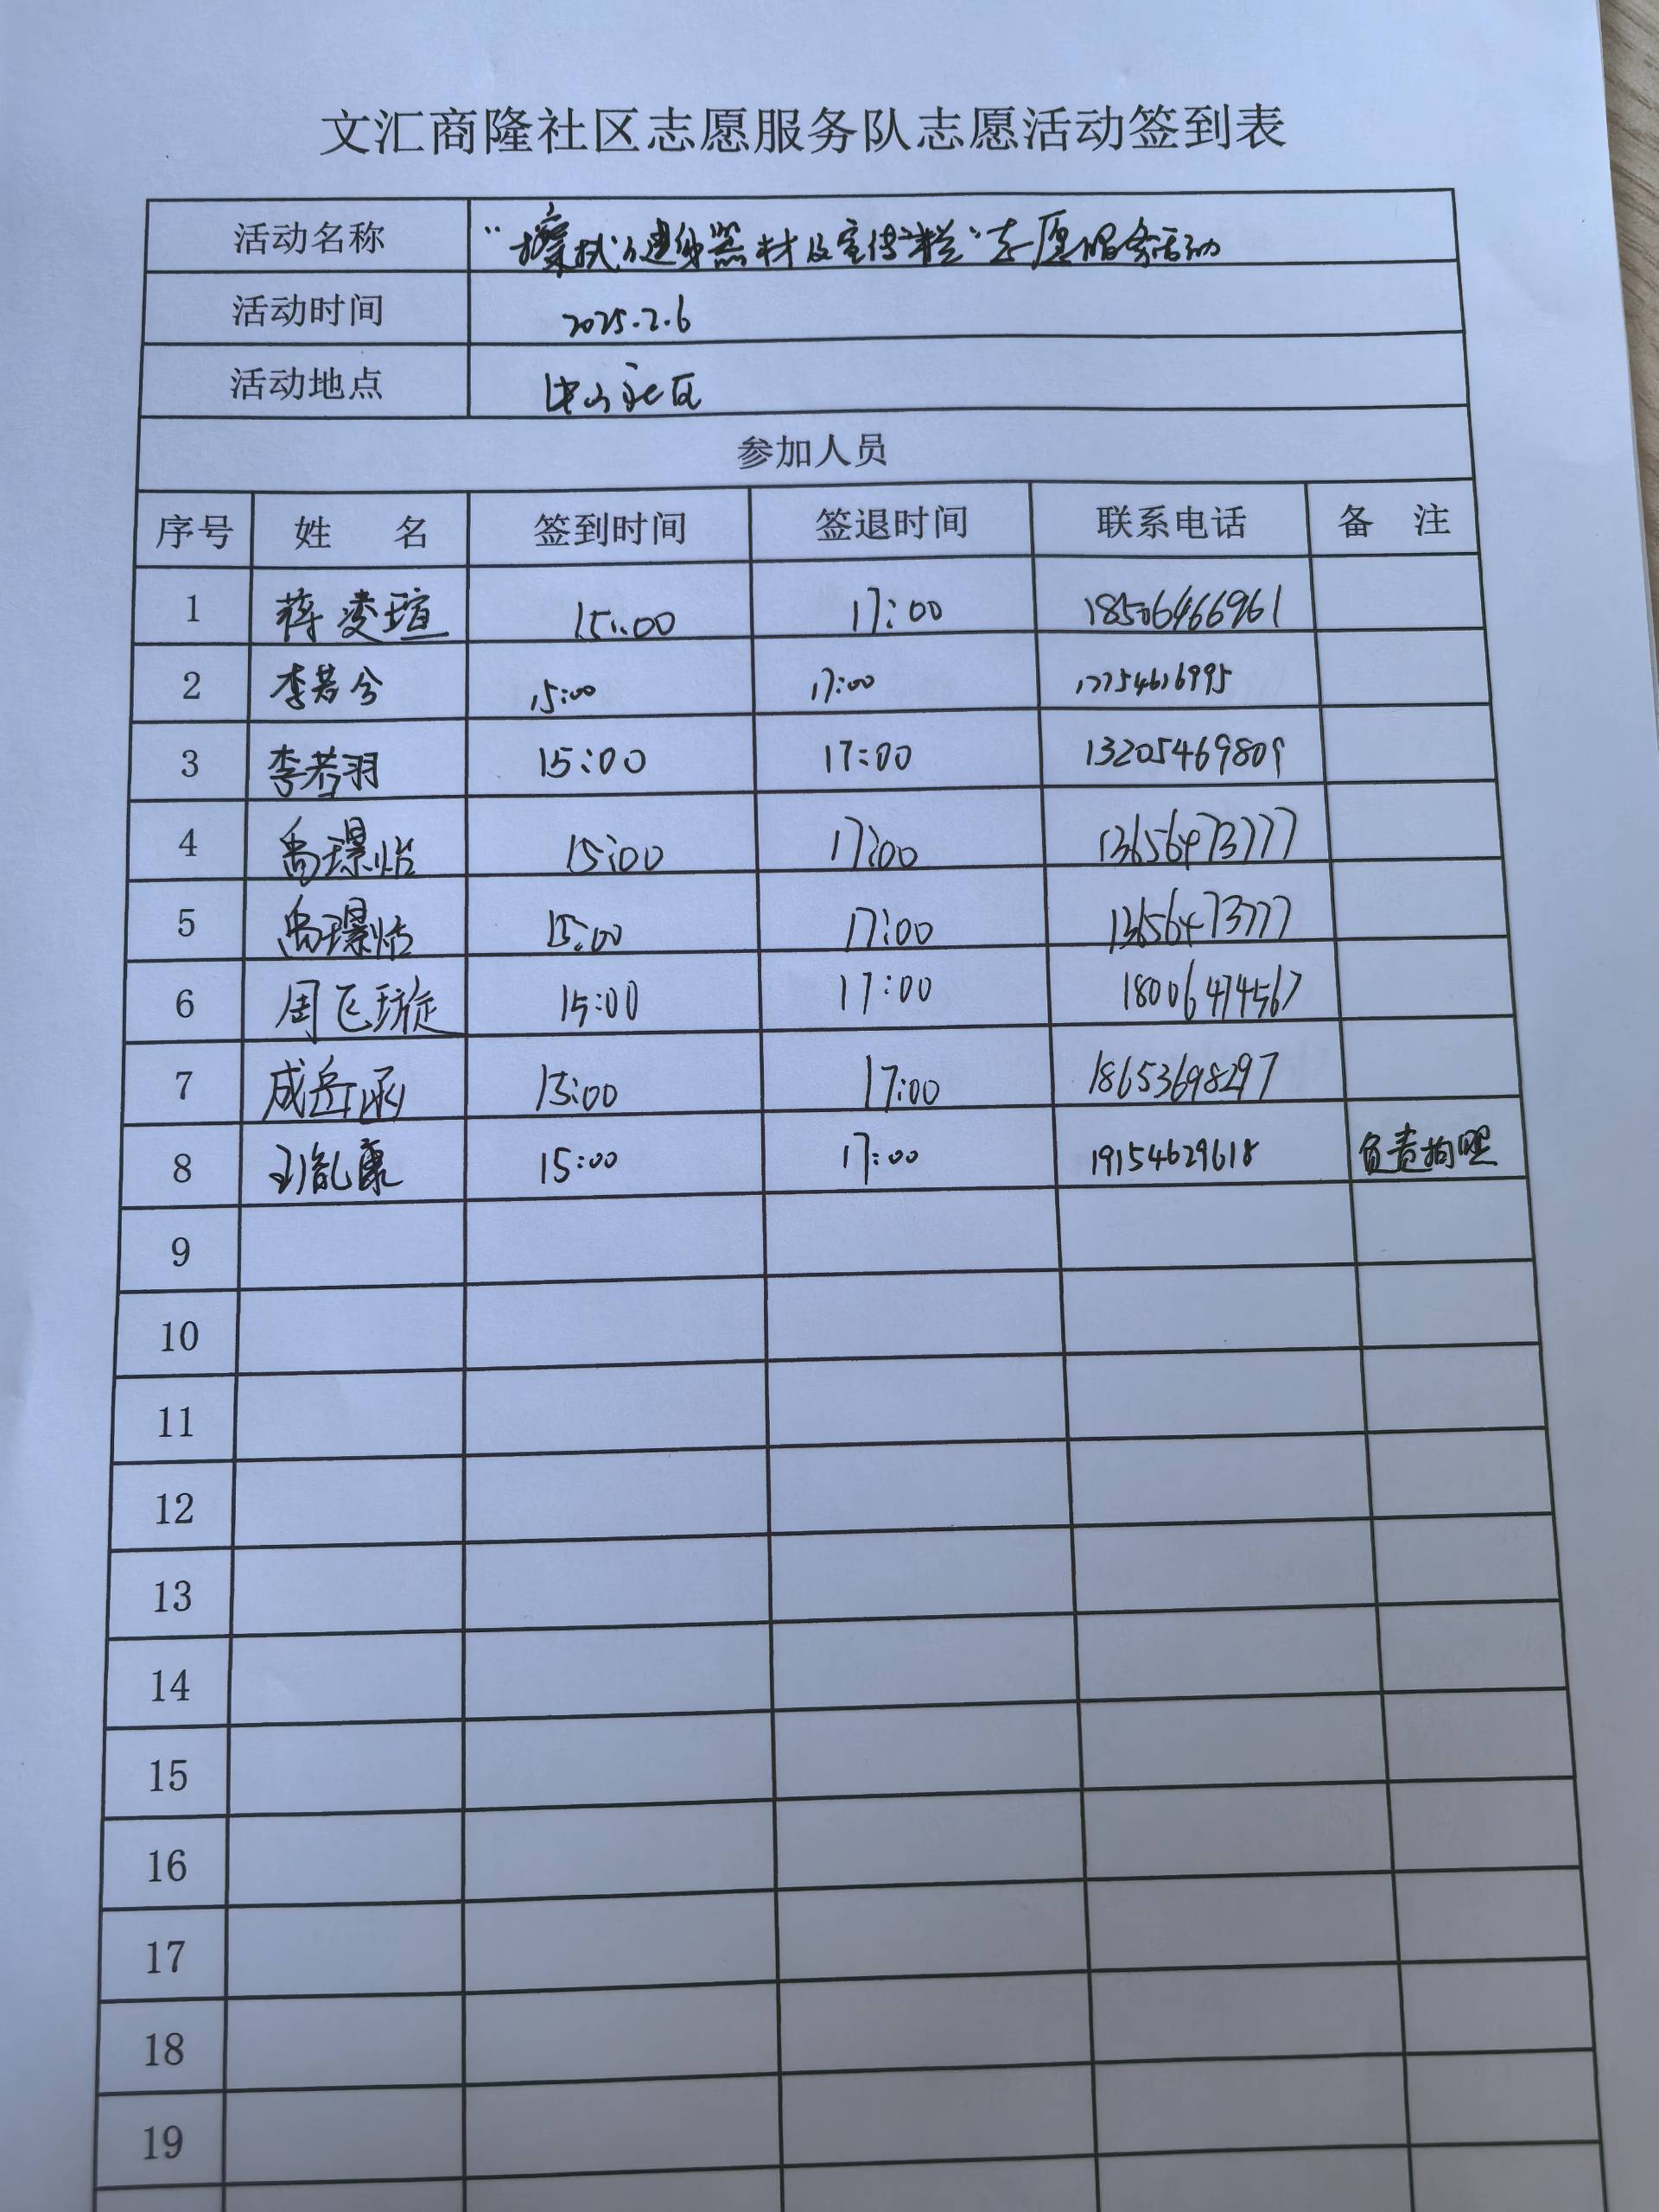 文汇商隆社区志愿服务队志愿活动签到表
活动名称 “擦拭健身器材及宣传栏”志愿服务活动
活动时间 2025.2.6
活动地点 中山社区
参加人员
序号 姓 名 签到时间 签退时间 联系电话 备 注
1 蒋凌瑄 15:00 17:00 18506466961
2 李若兮 15:00 17:00
3 李若羽 15:00 17:00 13205469809
4 15:00 17:00 13656473777
5 15:00 17:00 13656473777
6 周飞璇 15:00 17:00 18006474567
7 成岳函 15:00 17:00 18653698297
8 15:00 17:00 19154629618 负责拍照
9
10
11
12
13
14
15
16
17
18
19